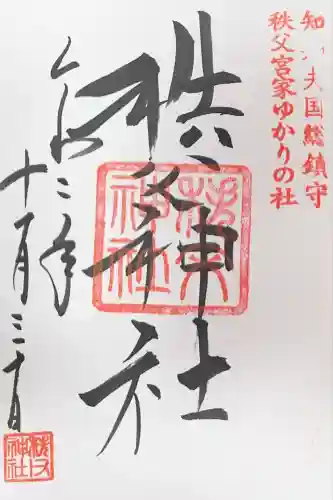 知知夫国総鎮守
秩父宮家ゆかりの社
秩父神社
秩父神社
令和二年
十一月三十日
秩父神社